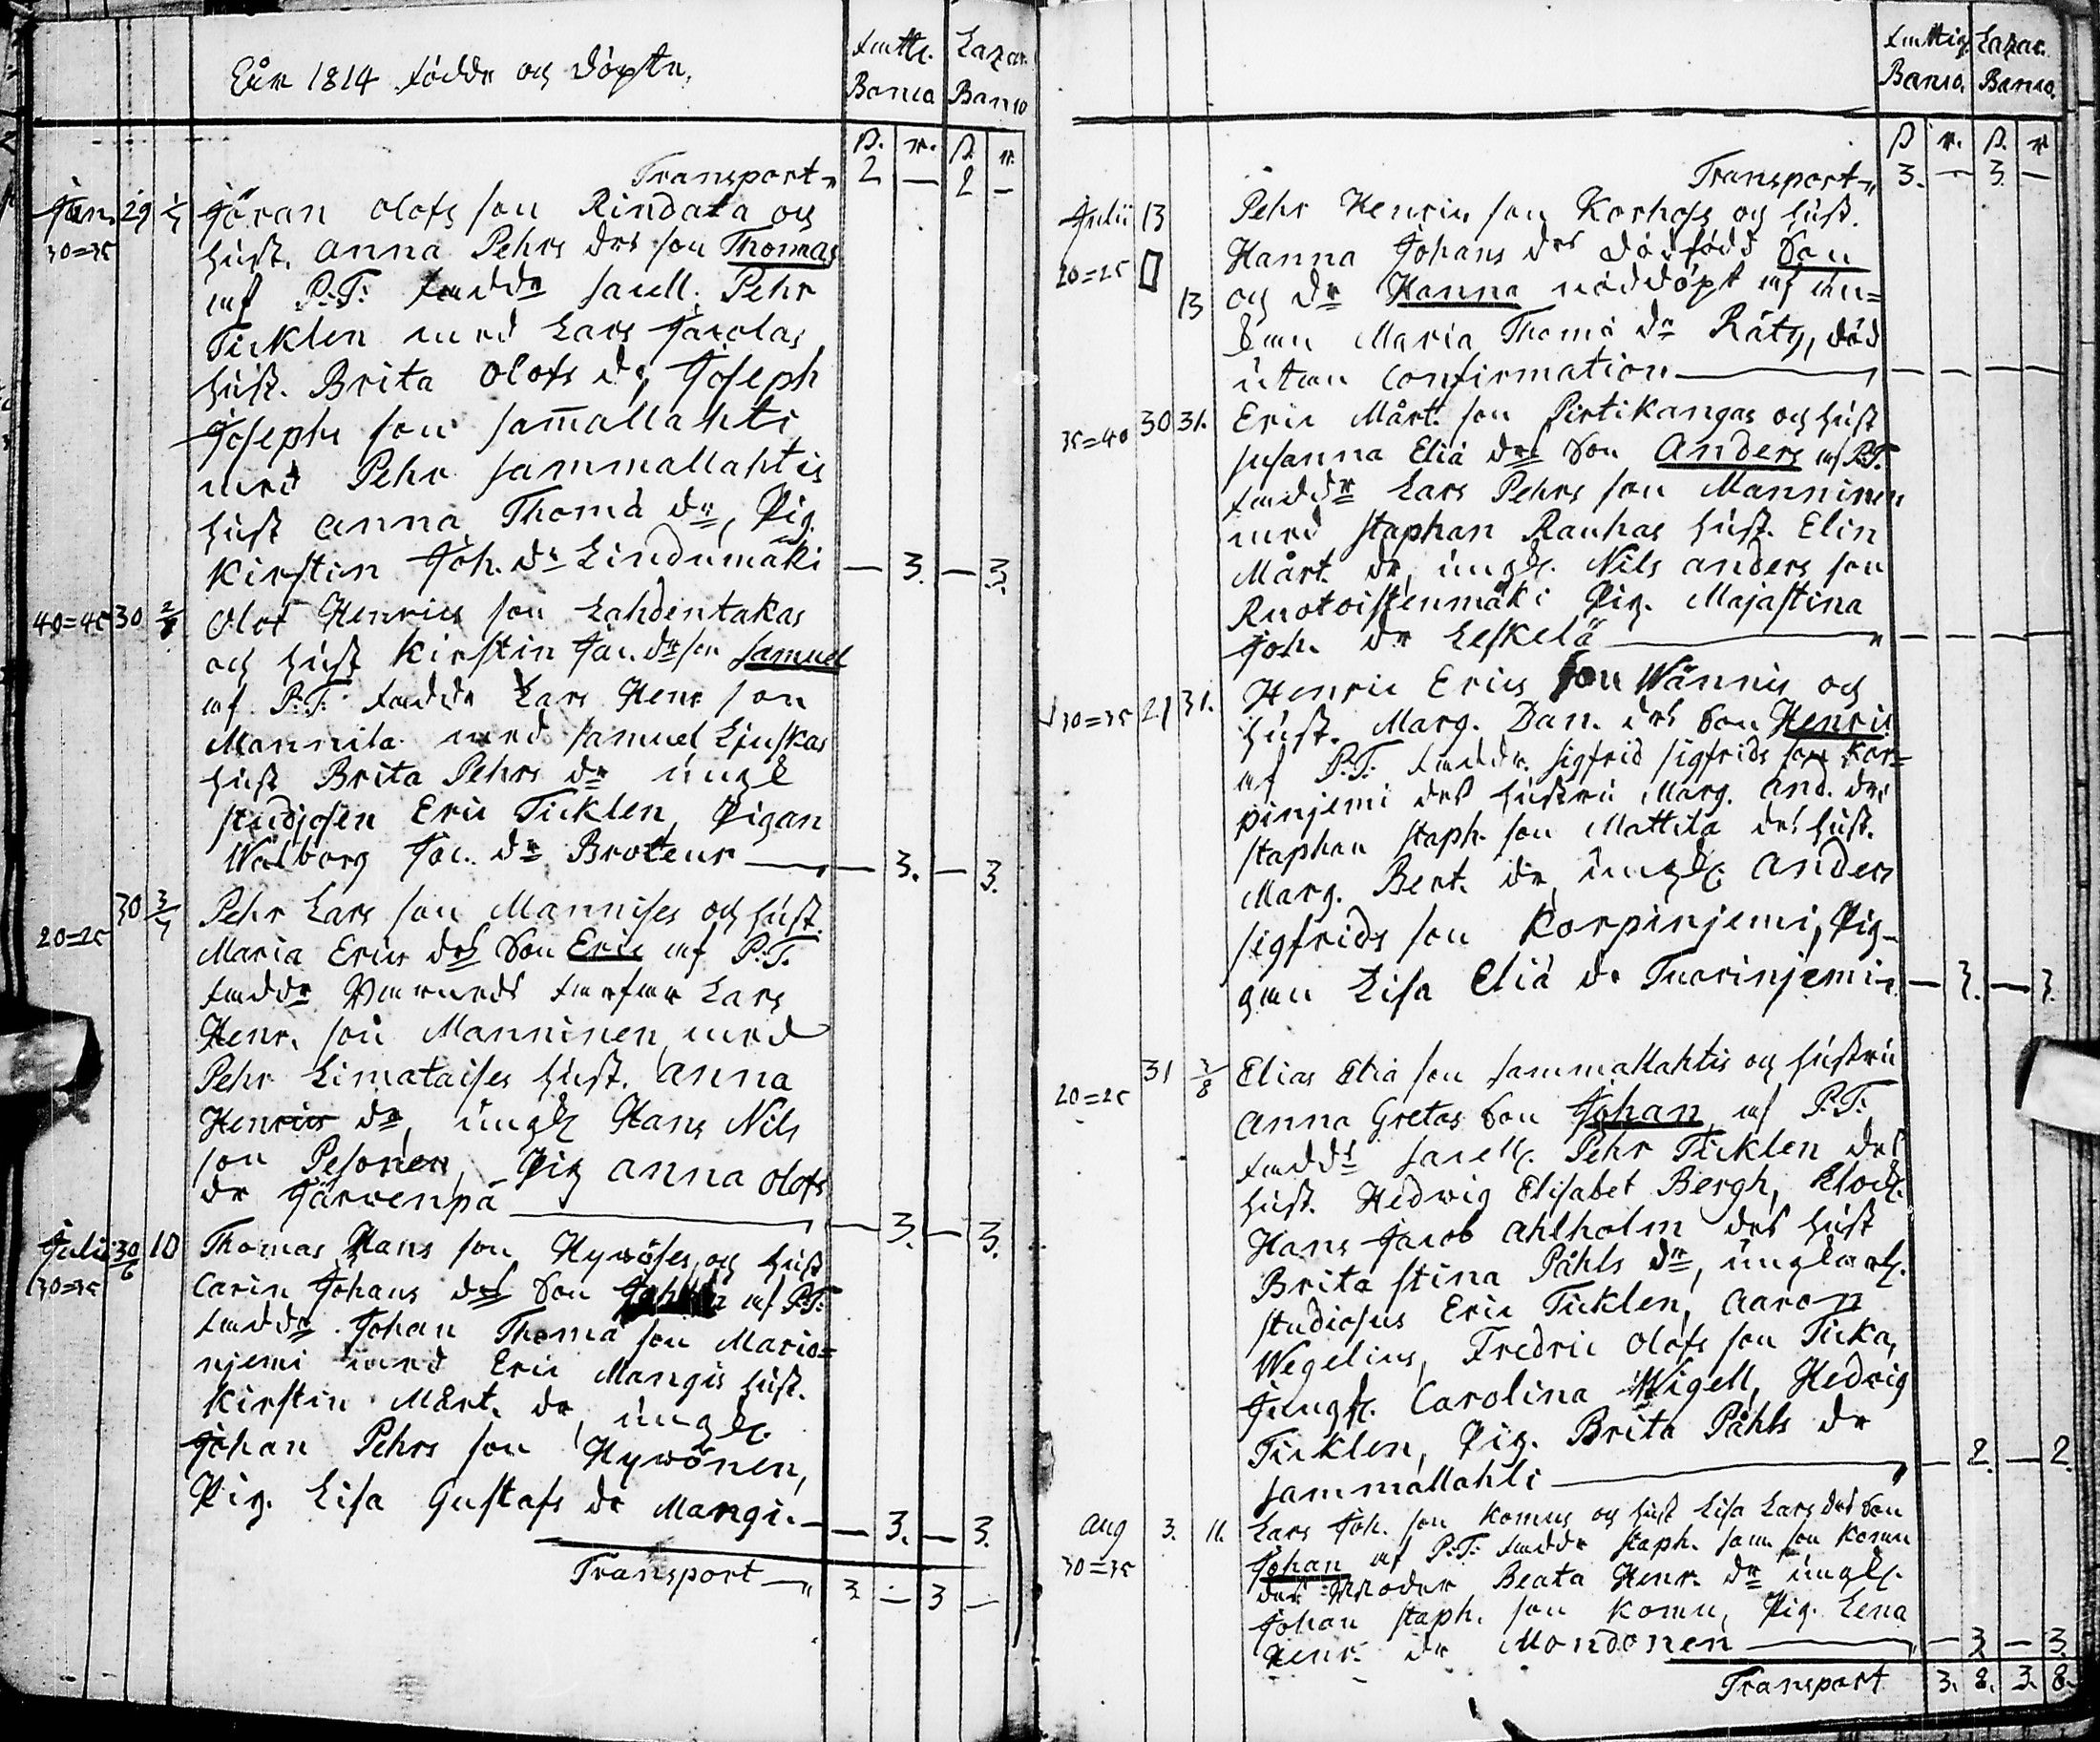 Åhr 1814 födde och döpte.
Fattig. Banco
Lazar. Banco
ß. r. ß. r.
Transport 2 — 2 —
Jun. 29 1/7 Jöran Olofs son Rindala och
30=35 hust. Anna Pehrs drs son Thomas
af P:T: faddr Sacell. Pehr
Ticklen med Lars Jacolas
hust. Brita Olofs dr, Joseph
Josephs son Sam̄allahti
med Pehr Sammallahtis
hust Anna Thomæ dr, Pig.
Kirstin Joh. dr Lindumäki — 3. — 3.
40=45 30 2/7 Olof Henrics son Lahdentakas
och hust Kirstin Jac. dr son Samuel
af P:T: faddr Lars Henr son
Mannila med Samuel Ljuskas
hust Brita Pehrs dr ungk
studiosen Eric Ticklen, Pigan
Walborg Jac. dr Broteur — 3. — 3.
30 3/7 Pehr Lars son Mannises och hust.
20=25 Maria Erics drs Son Eric af P:T.
faddr Barnets farfar Lars
Henr. son Manninen med
Pehr Limataises hust. Anna
Henrics dr, ungk Hans Nils
son Pesonen, Pig Anna Olofs
dr Järvenpä — 3. — 3.
Julii 30/6 10 Thomas Hans son Hywöses och hust
30=35 Carin Johans drs Son af P:T:
faddr Johan Thomæ son Mario=
njemi med Eric Mangis hust.
Kirstin Mårt. dr, ungk.
Johan Pehrs son Hywönen,
Pig. Lisa Gustafs dr Mangi. — 3. — 3.
Transport 3 — 3 —
Fattig. Banco.
Lazar. Banco.
ß r. ß. r
Transport 3. — 3. —
Julii 13 Pehr Henrics son Korhos och hust.
20=25 Hanna Johans drs dödfödd Son
13 och dr Hanna nöddöpt af än=
kan Maria Thomæ dr Räty, död
utan confirmation — — — —
35=40 30 31. Eric Mårt. son Pirtikangas och hust
Susanna Eliæ drs Son Anders af P:T.
faddr Lars Pehrs son Manninen
med Staphan Rauhas hust. Elin
Mårt. dr, ungk. Nils Anders son
Ruotoistenmäki Pig. Majastina
Joh. dr Leskelä — — — —
30=35 29 31. Henric Erics son Wännis och
hust. Marg. Dan. drs Son Henric
af P:T: faddr. Sigfrid Sigfrids son Kor=
pinjemi des hustru Marg. And. dr
Staphan Staph. son Mattila des hust.
Marg. Bert. dr, ungk. Anders
Sigfrids son Korpinjemi, Pig=
gan Lisa Eliæ dr Tuorinjemi — 3. — 3.
31 7/8 Elias Eliæ son Sammallahtis och hustru
20=25 Anna Gretas Son Johan af P:T:
fadds Sacell. Pehr Ticklen des
hust. Hedwig Elisabet Bergh, Klock.
Hans Jacob Ahlholm des hust
Brita Stina Påhls dr, ungkarl.
Studiosus Eric Ticklen, Aaron
Wegelius, Fredric Olofs son Ticka,
Jungfr. Carolina Wigell, Hedvig
Ticklen, Pig. Brita Påhls dr
Sammallahti — 2. — 2.
Aug 3. 11. Lars Joh. son Komus och hust Lisa Lars drs Son
30=35 Johan af P:T: faddr Staph. Sam. son Komu
des Moder Beata Henr. dr ungk.
Johan Staph. son Komu, Pig. Lena
Henr. dr Mondonen — 3 — 3.
Transport 3. 8. 3. 8.